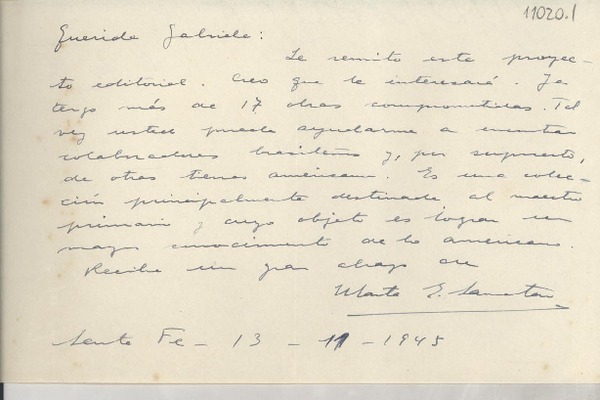 11020.1
Querida Gabriela:
Le remito este proyec-
to editorial. Creo que le interesará. Ya
tengo más de 17 obras comprometidas. Tal
vez usted pueda ayudarme a encontrar
colaboradores brasileños y, por supuesto,
de otras tierras americanas. Es una colec-
ción principalmente destinada al maestro
primario y cuyo objeto es lograr un
mayor conocimiento de lo americano.
Recibe un gran abrazo de
Marta E. Samatan
Santa Fe - 13 - 11 - 1945